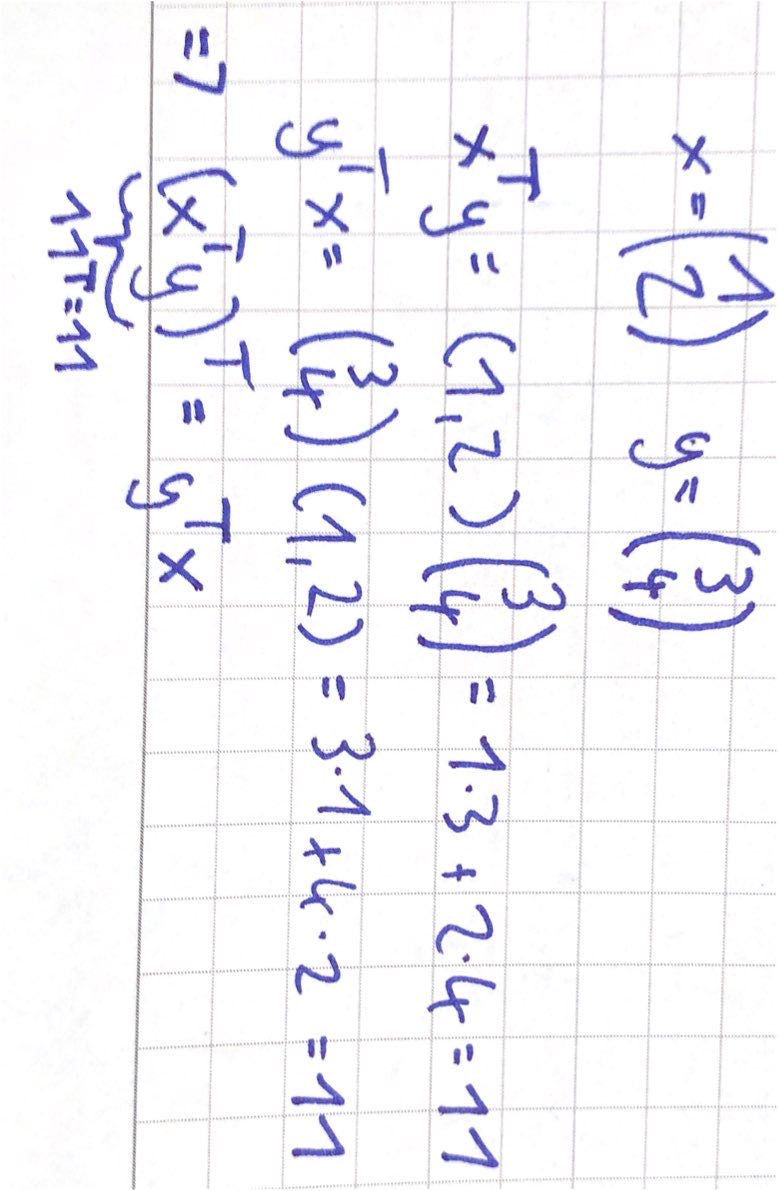 x = (1 2) y = (3 4)
xᵀy = (1,2) (3 4) = 1·3 + 2·4 = 11
yᵀx = (3 4) (1,2) = 3·1 + 4·2 = 11
=> (xᵀy)ᵀ = yᵀx
11ᵀ = 11